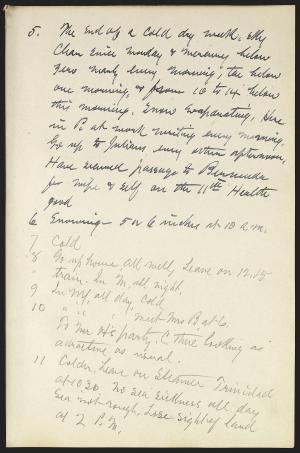 5. The End of a Cold day week. Sky
Clear since Monday & Mercury below
Zero nearly every morning, ten below
one morning & from 10 to 14 below
this morning. Snow evaporating. Here
in P. at work writing every morning.
Go up to Julians every other afternoon.
Have secured passage to Bermuda
for wife & self on the 11th Health
good
6 Snowing - 5 or 6 inches at 10 a.m.
7 Cold
8 Go up home all well, Leave on 12.15
" train. In N.Y. all right
9 In N.Y. all day, cold
10 " " " , meet Mrs B at 6.
To Mr H's party, C there looking as
attractive as usual.
11 Colder. Leave on Steamer Trinidad
at 10.30 No sea sickness all day
Sea not rough, Lose sight of land
at 2 P.M.